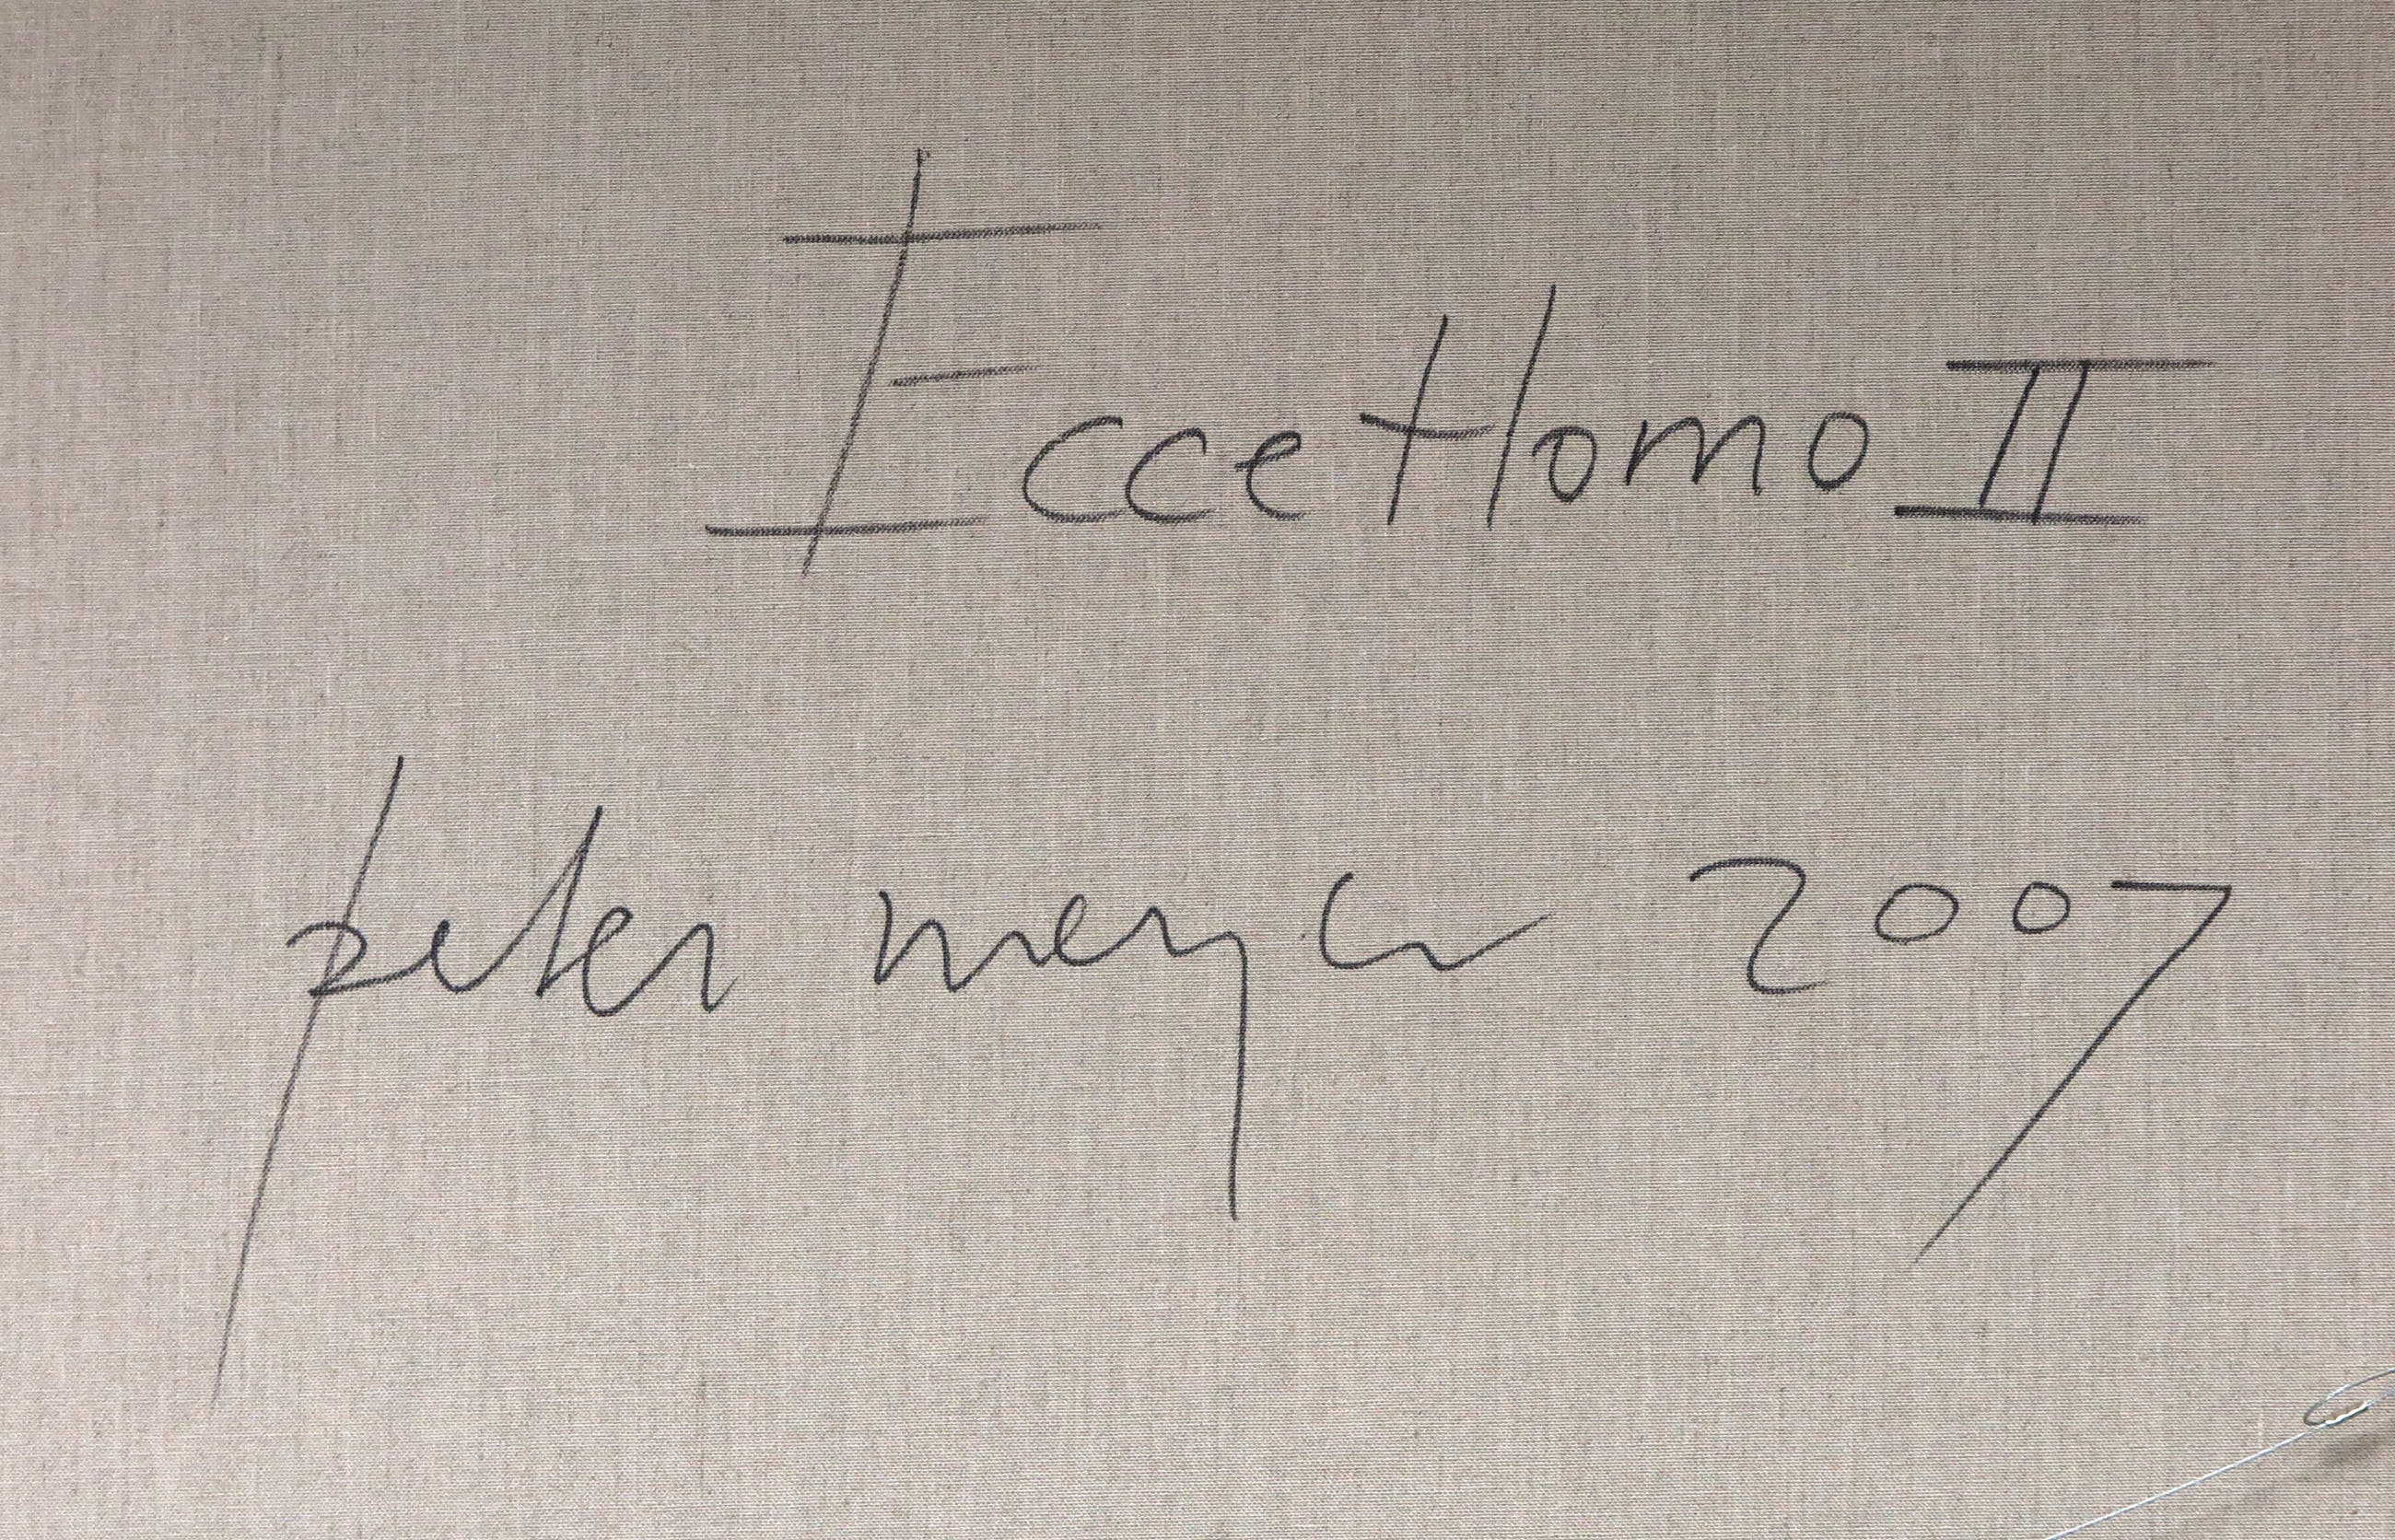 Ecce Homo II
peter meyer 2007